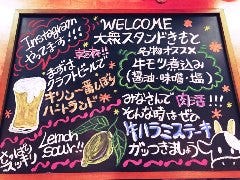 Instagram
やってます!!!
まずは
クラフトビールで
キリン一番しぼり
ハートランド
Lemon
Sour!!
さっぱり
スッキリ
WELCOME
大衆スタンドきもと
名物オススメ
牛モツ煮込み
(醤油・味噌・塩)
みなさんで肉活!!!
そんな時はぜひ
牛ハラミステーキ
がっつきましょう